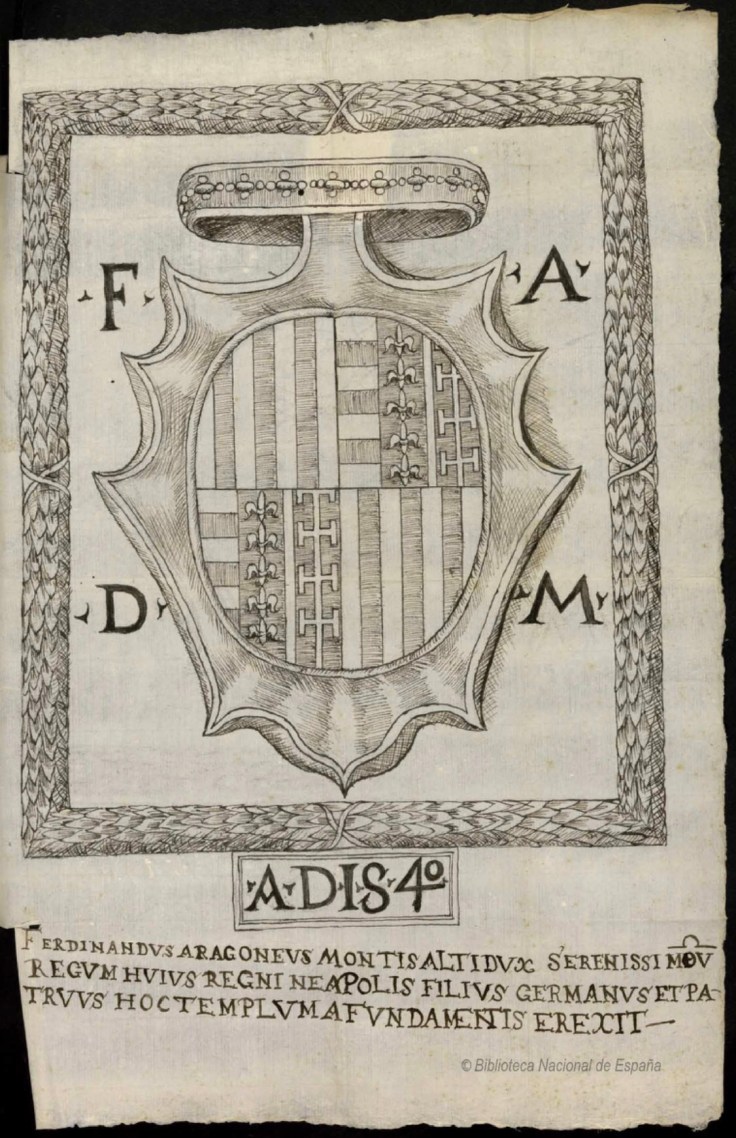 ·F· ·A·
·D· ·M·
·A·D·I·S·4º·
FERDINANDVS ARAGONEVS MONTIS ALTI DVX SERENISSIMOV
REGVM HVIVS REGNI NEAPOLIS FILIVS GERMANVS ET PA-
TRVVS HOC TEMPLVM A FVNDAMENTIS EREXIT—
© Biblioteca Nacional de España